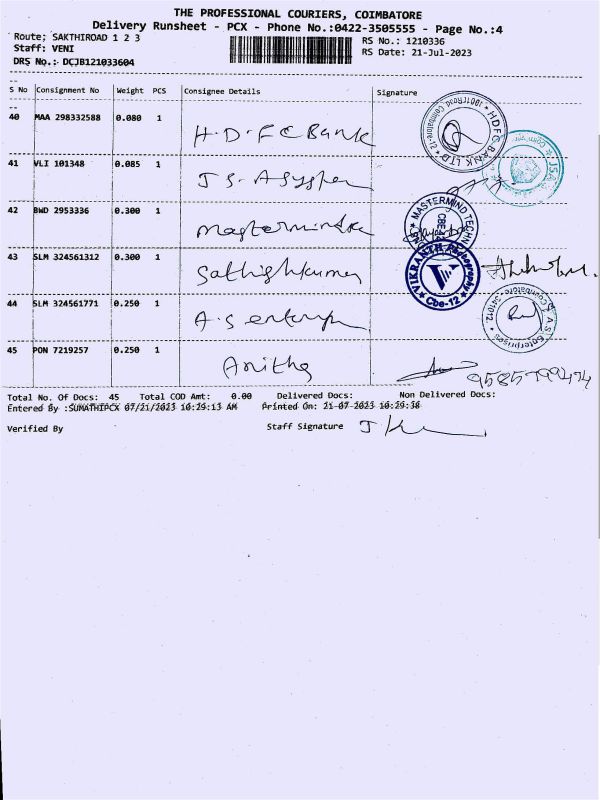 THE PROFESSIONAL COURIERS, COIMBATORE
Delivery Runsheet - PCX - Phone No.:0422-3505555 - Page No.:4
Route; SAKTHIROAD 1 2 3
RS No.: 1210336
Staff: VENI
RS Date: 21-Jul-2023
DRS No.: DCJB121033604
S No Consignment No Weight PCS Consignee Details Signature
40 MAA 298332588 0.080 1 H.D.F.C Bank
HDFC BANK LTD
41 VLI 101348 0.085 1 J S.
42 BWD 2953336 0.300 1
MASTERMIND TECHN
CBE
43 SLM 324561312 0.300 1 Sathishkumar
VIKRANTH
Cbe-12
44 SLM 324561771 0.250 1 A.S
A.S Enterprises
Coimbatore - 641012
45 PON 7219257 0.250 1 Anitha
Total No. Of Docs: 45 Total COD Amt: 0.00 Delivered Docs: Non Delivered Docs:
Entered By :SUMATHIPCX 07/21/2023 10:29:13 AM Printed On: 21-07-2023 10:29:38
Verified By Staff Signature